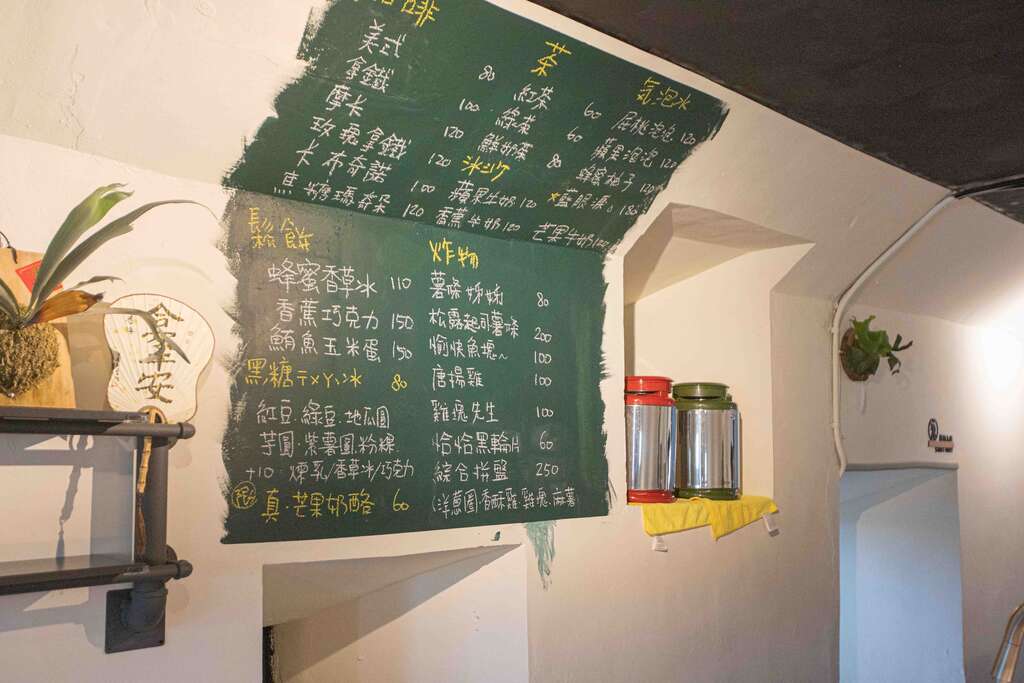 啡
美式 80
拿鐵 100
摩卡 120
玫瑰拿鐵 120
卡布奇諾 100
黑糖瑪奇朵 120
茶
紅茶 60
綠茶 60
鮮奶茶 80
冰ㄉ
蘋果牛奶 120
香蕉牛奶 120
芒果牛奶
氣泡水
屁桃泡泡 120
蘋果泡泡 120
蜂蜜柚子 120
*藍眼淚。180
鬆餅
蜂蜜香草冰 110
香蕉巧克力 150
鮪魚玉米蛋 150
黑糖ㄘㄨㄚ冰 80
紅豆.綠豆.地瓜圓
芋圓.紫薯圓.粉粿
+10.煉乳/香草冰/巧克力
真.芒果奶酪 60
炸物
薯條姊姊 80
松露起司薯條 200
愉快魚塊~ 100
唐揚雞 100
雞塊先生 100
恰恰黑輪片 60
綜合拼盤 250
(洋蔥圈.香酥雞.雞塊.麻薯)